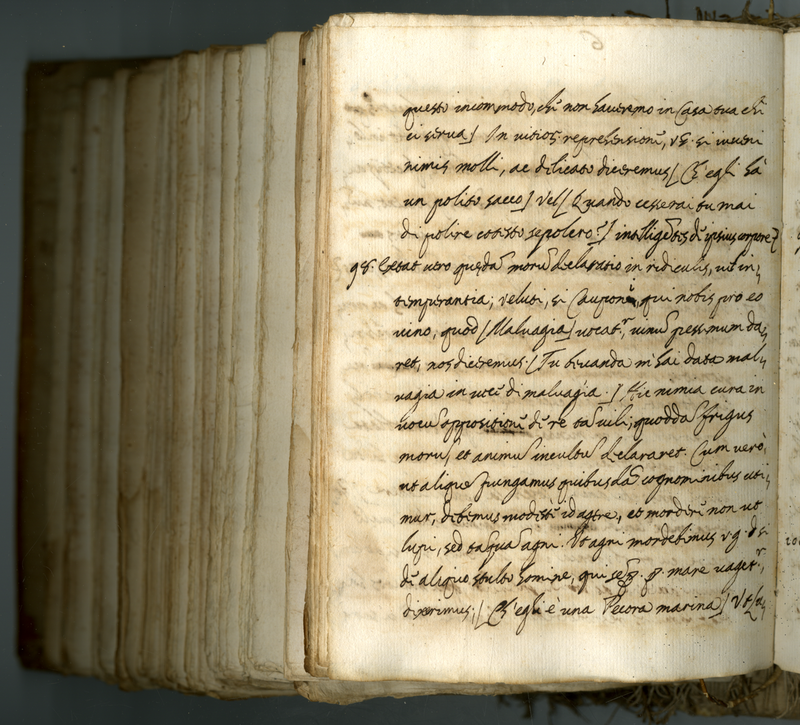 questo incommodo, chē non haueremo in Casa tua chi
ci serua] In uitios reprehensionē, vg. si iuueni
nimis molli, ac dilicato diceremus [Ch'egli hà
un polito sacco] vel [Quando cesserai tu mai
di polire cotesto sepolcro?] intelligētes dē ipsius corpore
98. Extat uero quædā morū declaratio in ridiculis, ut in,
temperantia; veluti, si Cauponi, qui nobis pro eo
uino, quod [Maluagia] uocatr, uinū pessimum da,
ret, nos diceremus. [Tu beuanda m'hai data mal,
uagia in uecē di maluagia.] Hic nimia cura in
uocū oppositionē dē re tā uili, quoddā frigus
morū, et animū incultū declararet. Cum verò,
ut aliquē pungamus quibusdā cognominibus uti,
mur, debemus modestē id agere, et mordere non ut
lupi, sed tāquā agni. Vt agni mordebimus vg. si
dē aliquo stulto homine, qui semp. p. mare uagetr,
dixerimus; [Ch'egli è una Pecora marina] Vt